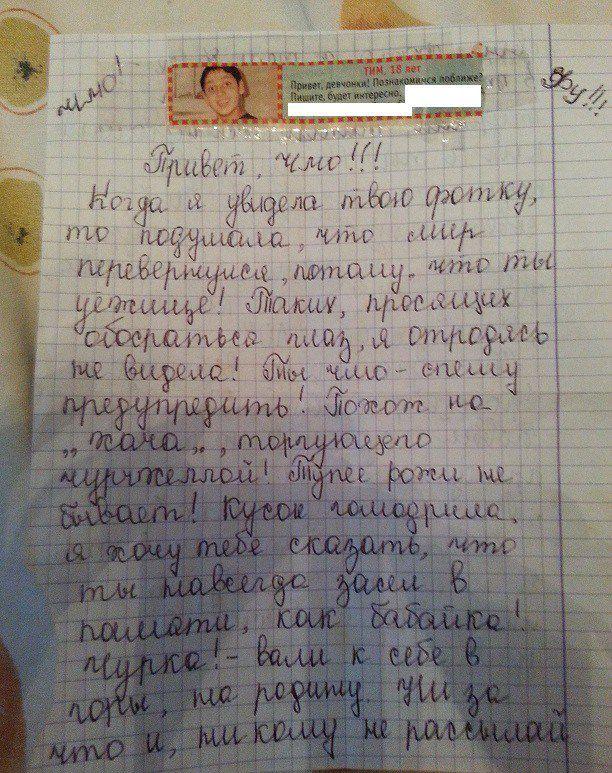 ТИМ, 18 лет
Привет, девчонки! Познакомимся поближе?
Пишите, будет интересно,
чмо!
Фу!!!
Привет, чмо!!!
Когда я увидела твою фотку,
то подумала, что мир
перевернулся, потому, что ты
ужище! Таких, просящих
обосраться глаз, я отродясь
не видела! Ты чмо - спешу
предупредить! Похож на
„хача„, торгующего
чурчхеллой! Тупее рожи не
бывает! Кусок гомодрила,
я хочу тебе сказать, что
ты навсегда залез в
памяти, как бабайка!
Чурка! - вали к себе в
горы, на родину. Ни за
что и, никому не рассылай